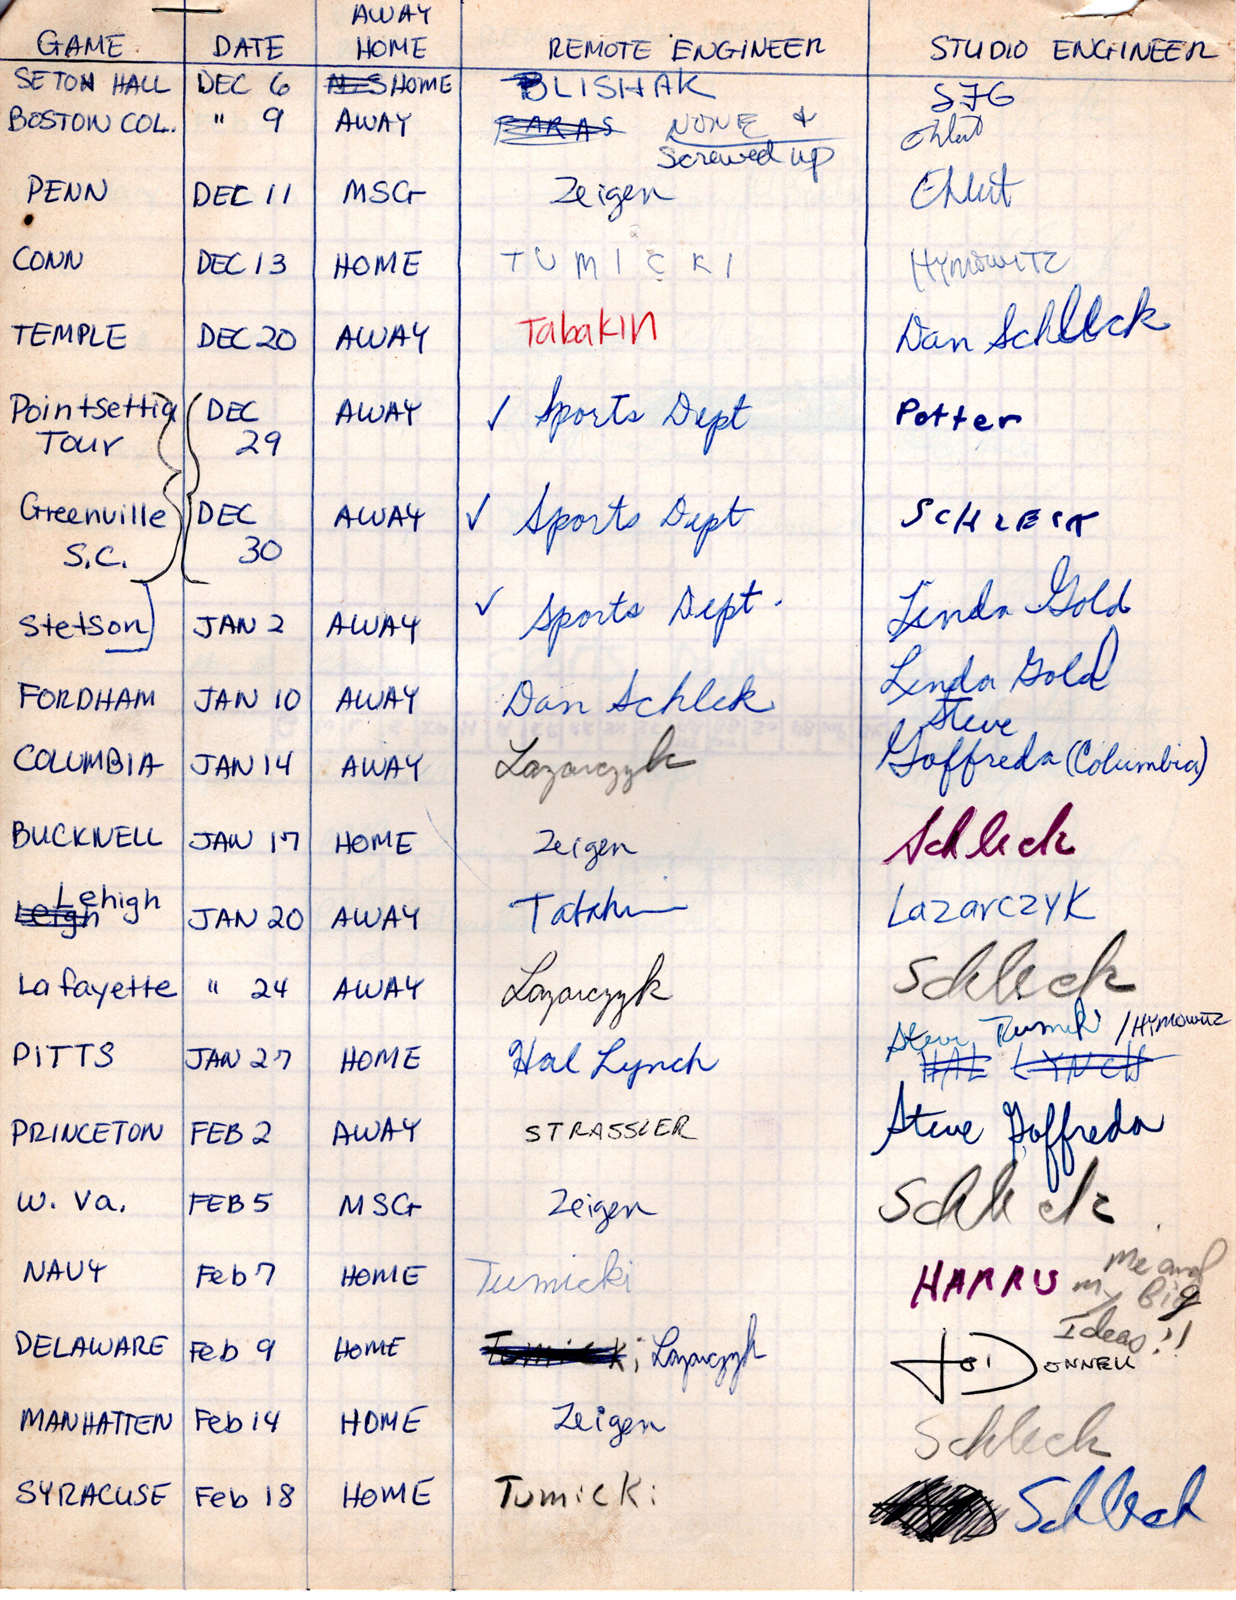 GAME DATE AWAY HOME REMOTE ENGINEER STUDIO ENGINEER
SETON HALL DEC 6 HOME BLISHAK SFG
BOSTON COL. " 9 AWAY BARAS NONE & Screwed up Ehlert
PENN DEC 11 MSG Zeigen Ehlert
CONN DEC 13 HOME TUMICKI HYMOWITZ
TEMPLE DEC 20 AWAY TabakIN Dan Schleck
Pointsettia Tour DEC 29 AWAY ✓ Sports Dept Potter
Greenville S.C. DEC 30 AWAY ✓ Sports Dept SCHLECK
Stetson JAN 2 AWAY ✓ Sports Dept. Linda Gold
FORDHAM JAN 10 AWAY Dan Schlek Linda Gold
COLUMBIA JAN 14 AWAY Lazarczyk Steve Goffreda (Columbia)
BUCKNELL JAN 17 HOME Zeigen Schleck
Leigh Lehigh JAN 20 AWAY Lazarczyk
Lafayette " 24 AWAY Lazarczyk Schleck
PITTS JAN 27 HOME Hal Lynch Steve Tumicki /HYMOWITZ HAL LYNCH
PRINCETON FEB 2 AWAY STRASSLER Steve Goffreda
W. Va. FEB 5 MSG Zeigen Schleck
NAVY Feb 7 HOME Tumicki HARRY me and my big Ideas!!
DELAWARE Feb 9 HOME Tumicki; Lazarczyk Jo O'DONNELL
MANHATTEN Feb 14 HOME Zeigen Schleck
SYRACUSE Feb 18 HOME Tumicki Schleck